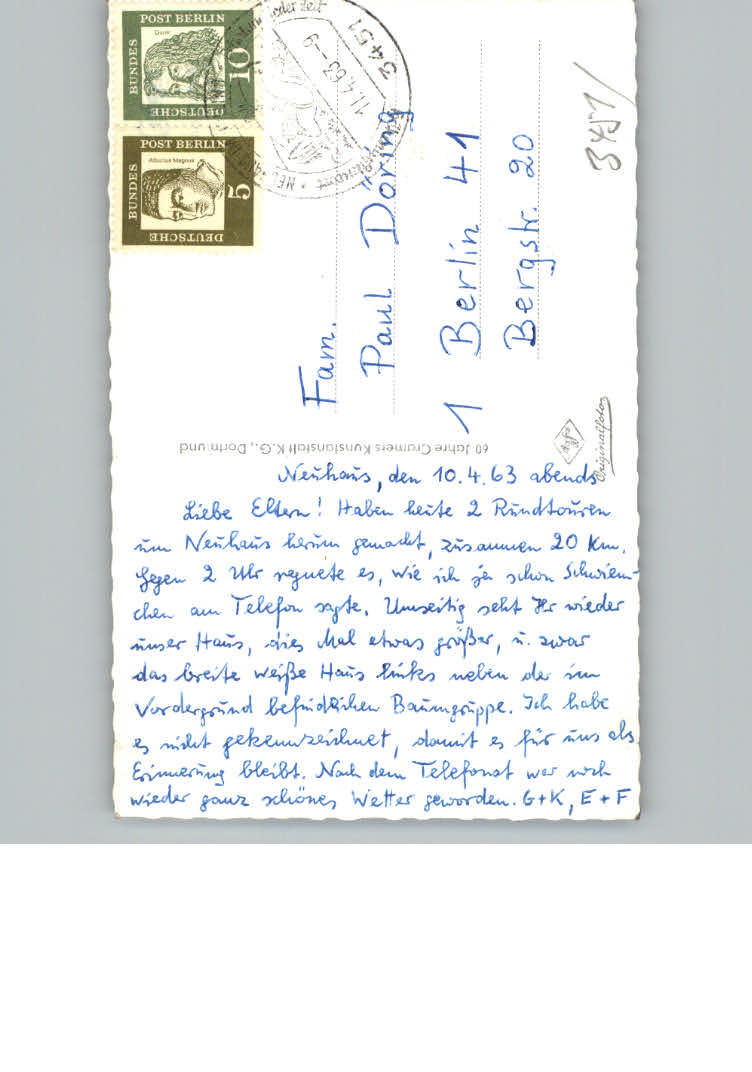 Neuhaus, den 10.4.63 abends
Liebe Eltern! Haben heute 2 Rundtouren
um Neuhaus herum gemacht, zusammen 20 km.
Gegen 2 Uhr regnete es, wie ich ja schon Schwien-
chen am Telefon sagte. Umseitig seht Ihr wieder
unser Haus, dies Mal etwas größer, u. zwar
das breite weiße Haus links neben der im
Vordergrund befindlichen Baumgruppe. Ich habe
es nicht gekennzeichnet, damit es für uns als
Erinnerung bleibt. Nach dem Telefonat war noch
wieder ganz schönes Wetter geworden. G+K, E+F
Fam.
Paul Döring
1 Berlin 41
Bergstr. 20
3451
60 Jahre Cramers Kunstanstalt K.G., Dortmund
Agfa
Originalfoto
DEUTSCHE
BUNDES
POST BERLIN
10
DEUTSCHE
BUNDES
POST BERLIN
Albertus Magnus
5
3451
11.4.63-9